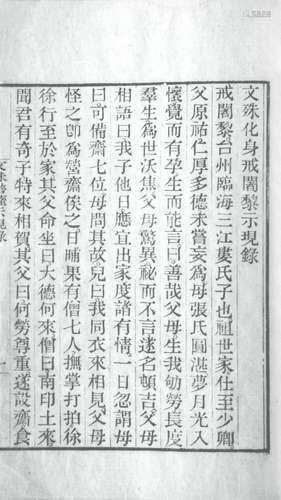 文殊化身戒闍黎示現錄
戒闍黎台州臨海三江婁氏子也祖世家仕至少卿
父原祐仁厚多德未嘗妄爲母張氏圓湛夢月光入
懷覺而有孕生而能言曰善哉父母生我劬勞長度
羣生爲世沃焦父母驚異祕而不言遂名頓吉父母
相語曰我子他日應宜出家度諸有情一日忽謂母
曰可備齋七位母問其故兒曰我同衣來相見父母
怪之卽爲營齋俟之日晡果有僧七人撫掌打拍徐
徐行至於家其父命坐曰大德何來僧曰南印土來
聞君有奇子特來相賀其父曰何勞尊重遂設齋食